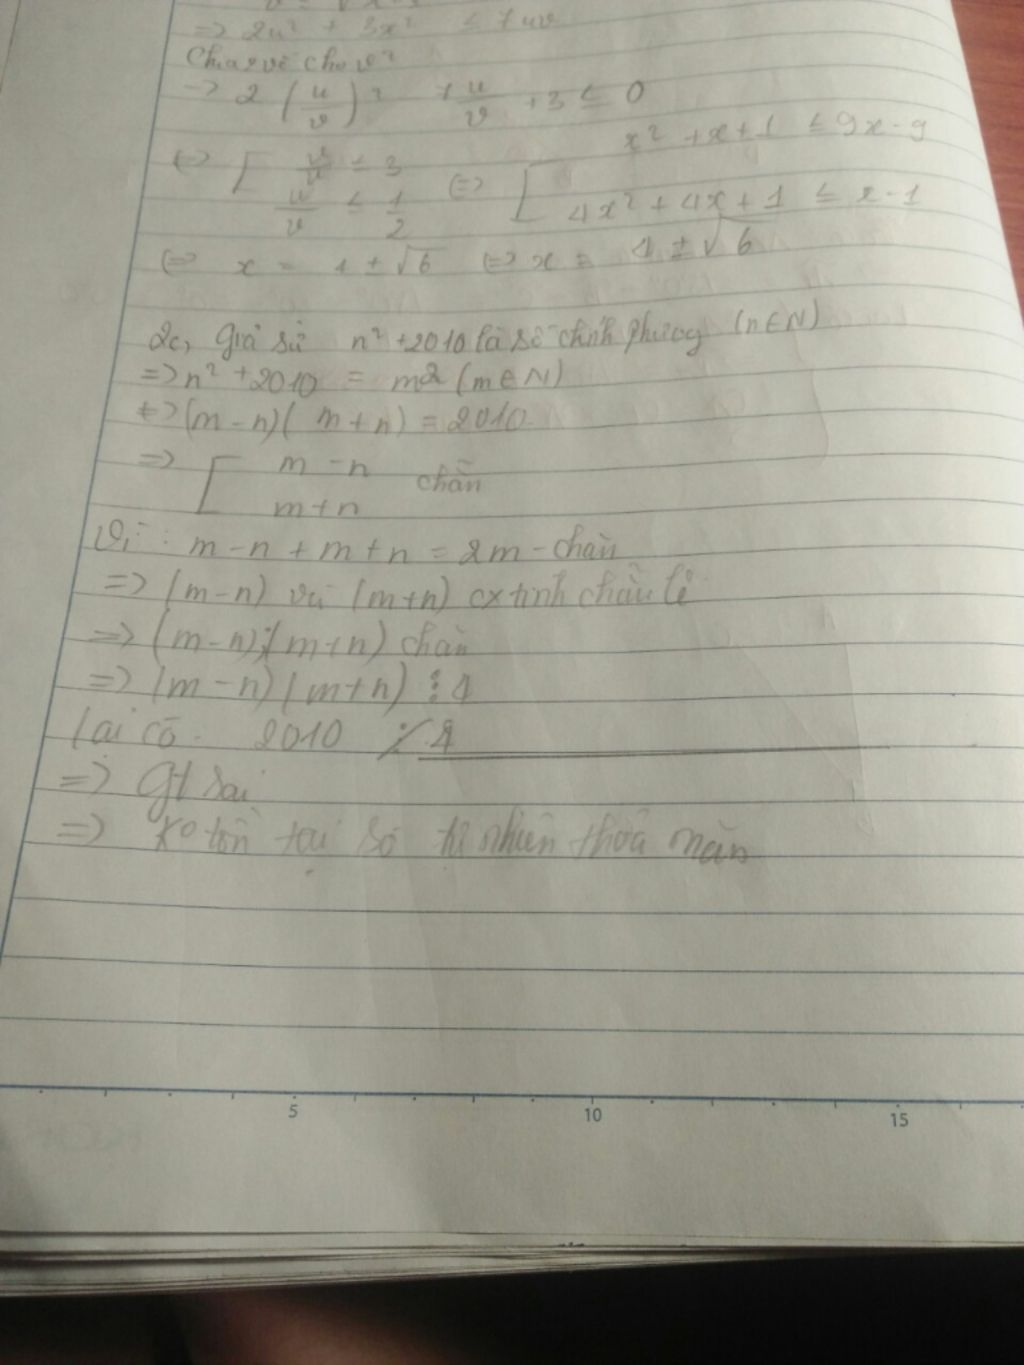 => 2u² + 3x² ≤ 7uv
Chia 2 vế cho v²
-> 2 (u/v)² + u/v + 3 ≤ 0
<=> [ v/u ≤ 3 <=> [ x² + x + 1 ≤ 9x - 9
u/v ≤ 1/2 4x² + 4x + 1 ≤ x - 1
<=> x = 4 ± √6 <=> x = 4 ± √6
2c, Giả sử n² + 2010 là số chính phương (n ∈ N)
=> n² + 2010 = m² (m ∈ N)
<=> (m - n)(m + n) = 2010
=> [ m - n chẵn
m + n
Vì: m - n + m + n = 2m - chẵn
=> (m - n) và (m + n) cx tính chẵn lẻ
=> (m - n); (m + n) chẵn
=> (m - n)(m + n) ⋮ 4
Lại có 2010 ⋮̸ 4
=> Gt sai
=> Ko tồn tại số tự nhiên thoả mãn
5 10 15